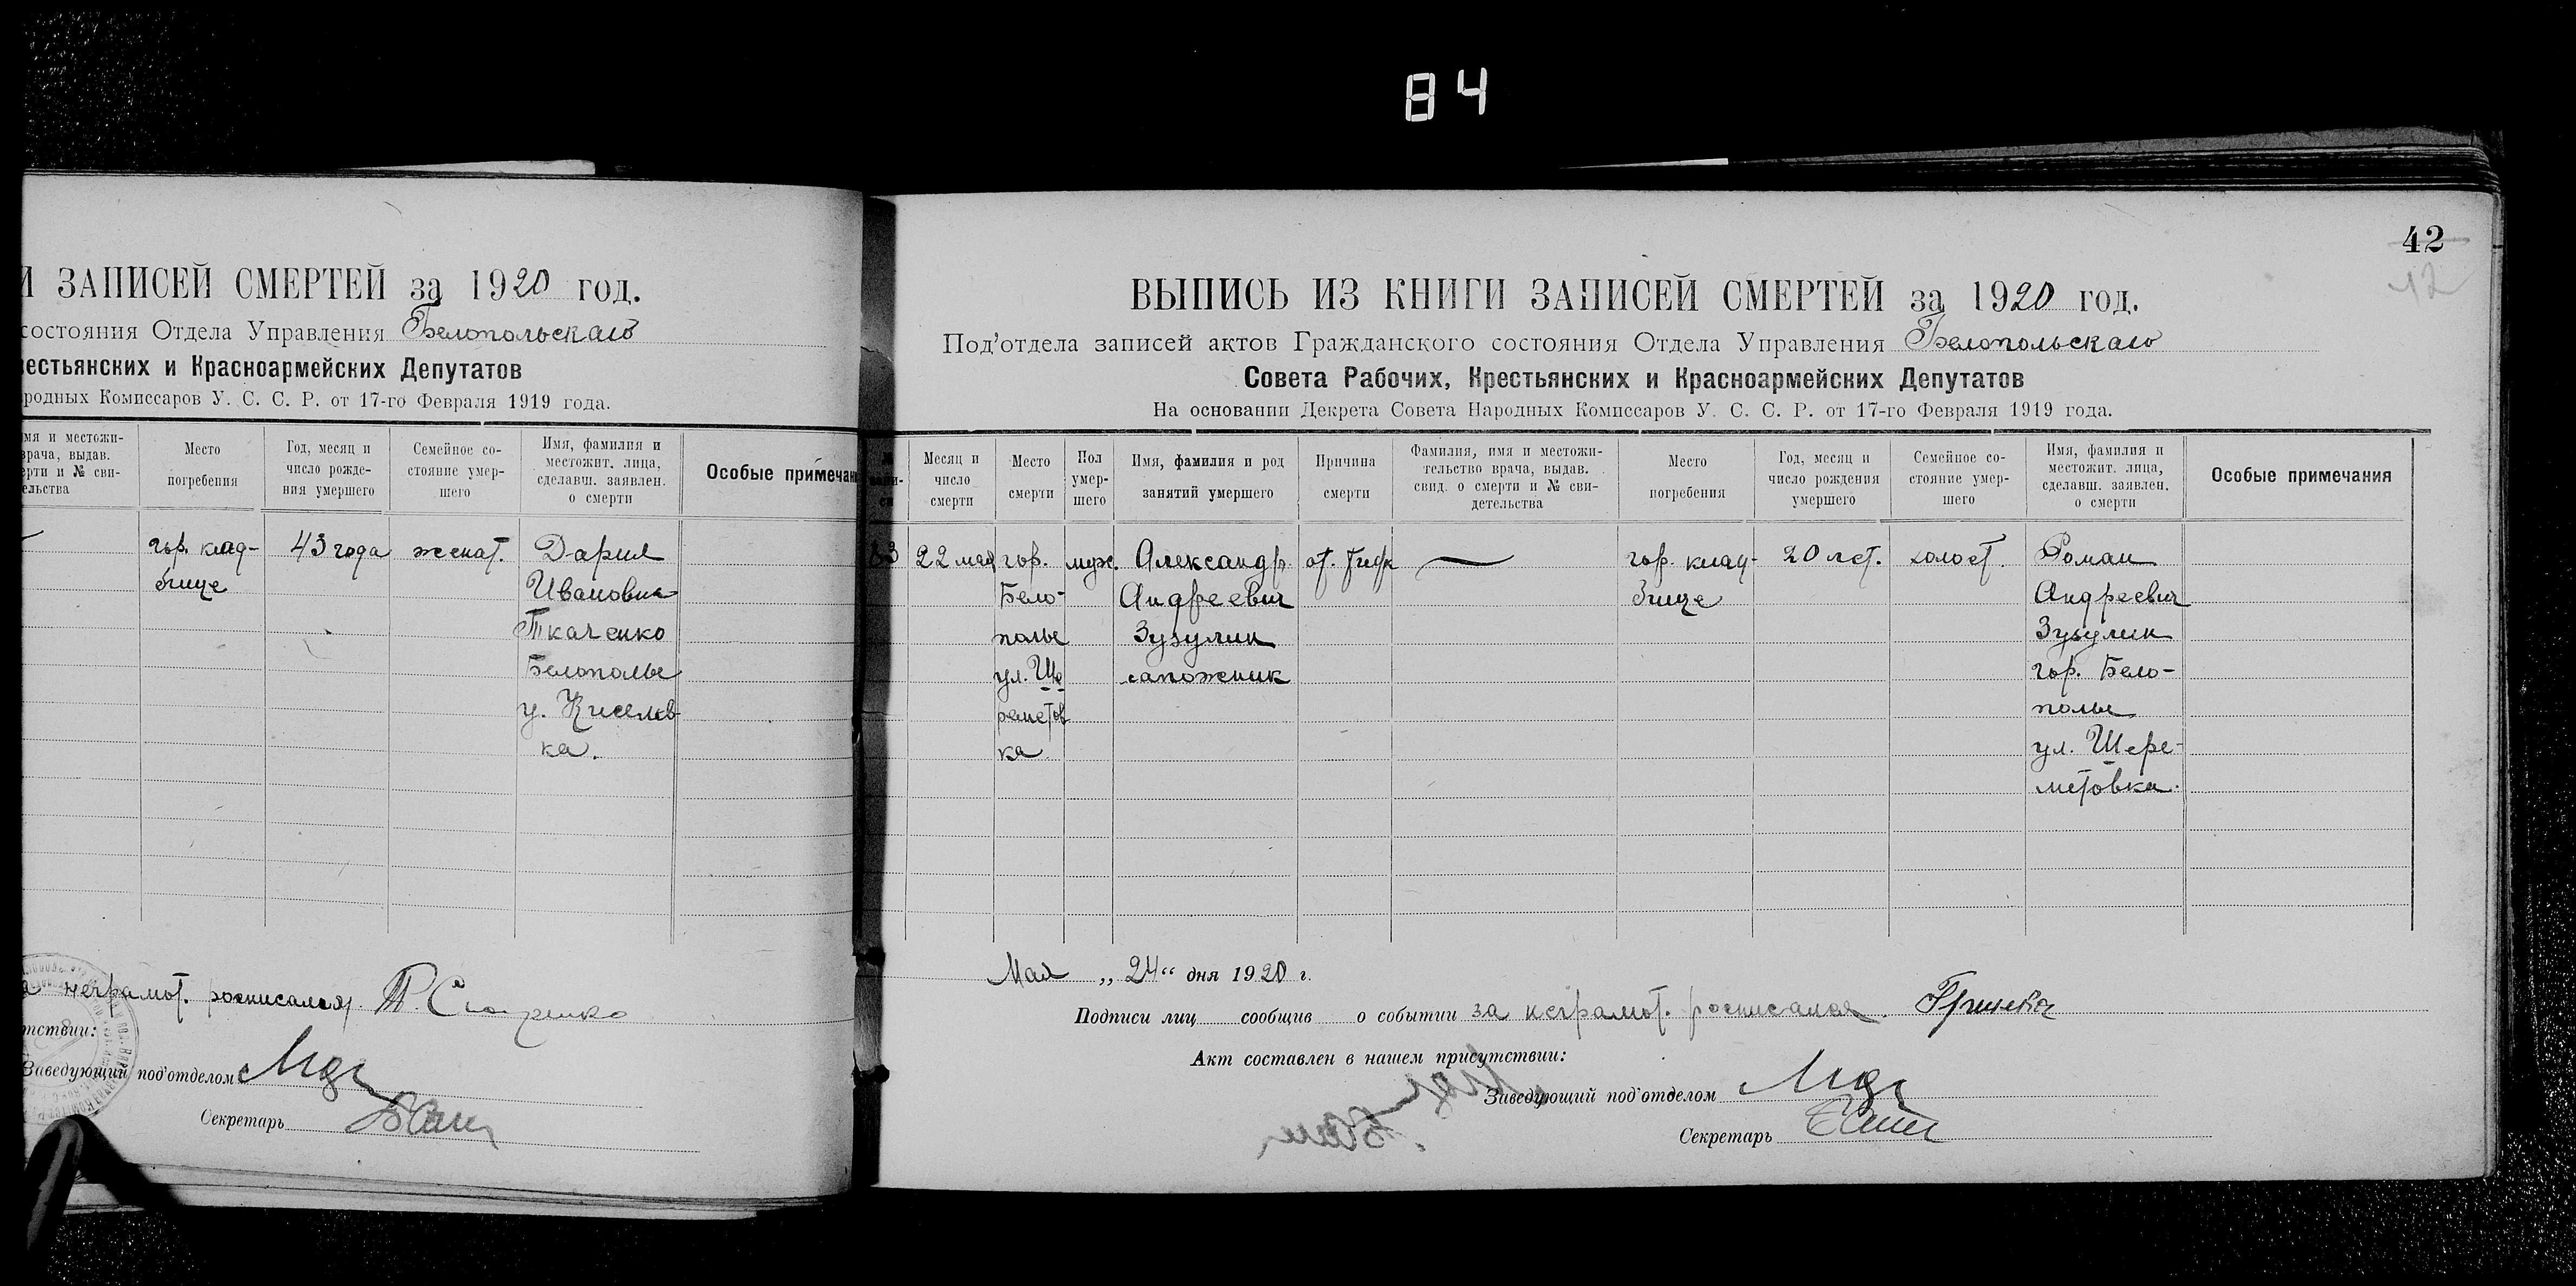 84
И ЗАПИСЕЙ СМЕРТЕЙ за 1920 год.
состояния Отдела Управления Белопольскаго
естьянских и Красноармейских Депутатов
родных Комиссаров У. С. С. Р. от 17-го Февраля 1919 года.
мя и местожи-
врача, выдав.
ерти и № сви-
ельства
Место
погребения
Год, месяц и
число рожде-
ния умершего
Семейное со-
стояние умер-
шего
Имя, фамилия и
местожит. лица,
сделавш. заявлен.
о смерти
Особые примечан
гор. клад-
бище
43 года
женат.
Дария
Ивановна
Ткаченко
Белополье
у. Киселев-
ка.
а неграмот. росписался
тствии:
Заведующий под'отделом
Секретарь
42
12
ВЫПИСЬ ИЗ КНИГИ ЗАПИСЕЙ СМЕРТЕЙ за 1920 год.
Под'отдела записей актов Гражданского состояния Отдела Управления Белопольскаго
Совета Рабочих, Крестьянских и Красноармейских Депутатов
На основании Декрета Совета Народных Комиссаров У. С. С. Р. от 17-го Февраля 1919 года.
Месяц и
число
смерти
Место
смерти
Пол
умер-
шего
Имя, фамилия и род
занятий умершего
Причина
смерти
Фамилия, имя и местожи-
тельство врача, выдав.
свид. о смерти и № сви-
детельства
Место
погребения
Год, месяц и
число рождения
умершего
Семейное со-
стояние умер-
шего
Имя, фамилия и
местожит. лица,
сделавш. заявлен.
о смерти
Особые примечания
22 мая
гор.
Бело-
полье
ул. Ше
реметов
ка.
муж.
Александр
Андреевич
Зузулин
сапожник
от. тиф
гор. клад-
бище
20 лет.
холост.
Роман
Андреевич
Зузулин
гор. Бело-
полье
ул. Шере-
метовка.
Мая „ 24 “ дня 1920 г.
Подписи лиц сообщив о событии за неграмот. росписался
Акт составлен в нашем присутствии:
Заведующий под'отделом
Секретарь